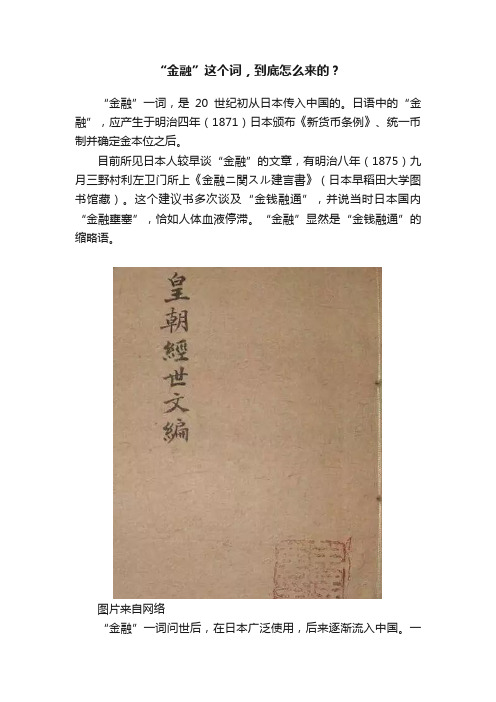 “金融”这个词，到底怎么来的？
“金融”一词，是 20 世纪初从日本传入中国的。日语中的“金
融”，应产生于明治四年（1871）日本颁布《新货币条例》、统一币
制并确定金本位之后。
目前所见日本人较早谈“金融”的文章，有明治八年（1875）九
月三野村利左卫门所上《金融ニ関スル建言書》（日本早稻田大学图
书馆藏）。这个建议书多次谈及“金钱融通”，并说当时日本国内
“金融壅塞”，恰如人体血液停滞。“金融”显然是“金钱融通”的
缩略语。
皇朝經世文編
图片来自网络
“金融”一词问世后，在日本广泛使用，后来逐渐流入中国。一